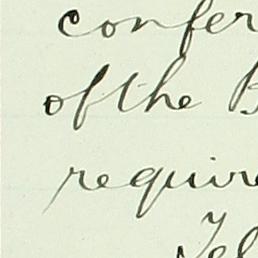 confer
of the B
require
Tel